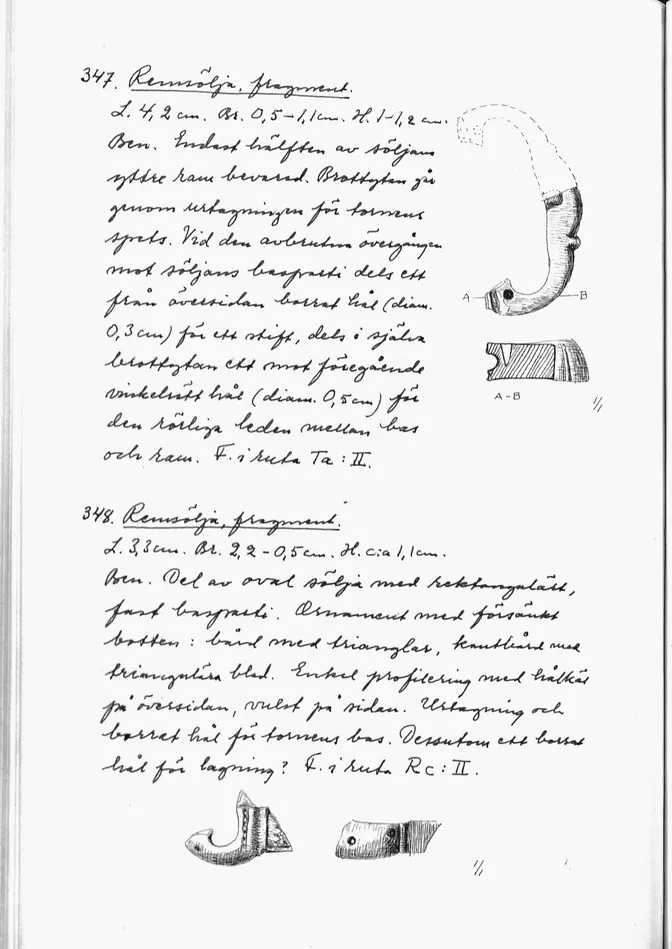 347. Remsölja, fragment.
L. 4,2 cm. Br. 0,5–1,1 cm. H. 1–1,2 cm.
Ben. Endast hälften av söljans
yttre ram bevarad. Brottytan går
genom urtagningen för tornens
spets. Vid den avbrutna övergången
mot söljans basparti dels ett
från översidan borrat hål (diam.
0,3 cm) för ett stift, dels i själva
brottytan ett mot föregående
vinkelrätt hål (diam. 0,5 cm) för
den rörliga leden mellan bas
och ram. F. i ruta Ta : II.
A
B
A–B
1/1
348. Remsölja, fragment.
L. 3,3 cm. Br. 2,2–0,5 cm. H. c:a 1,1 cm.
Ben. Del av oval sölja med rektangulärt,
fast basparti. Ornament med försänkt
botten : bård med trianglar, kantbård med
triangulära blad. Enkel profilering med hålkäl
på översidan, vulst på sidan. Urtagning och
borrat hål för tornens bas. Dessutom ett borrat
hål för lagning? F. i ruta Rc : II.
1/1